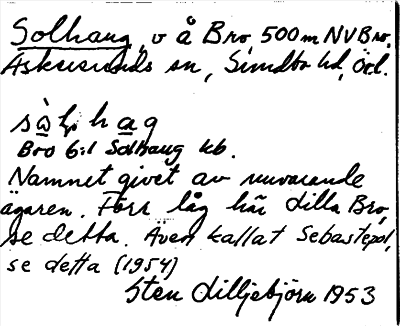 Solhaug, v å Bro 500 m NV Bro,
Askersunds sn, Sundbo hd, Ög.
Bro 6:1 Solhaug kb.
Namnet givet av nuvarande
ägaren. Förr låg här Lilla Bro,
se detta. Även kallat Sebastepol,
se detta (1954)
Sten Lilljebjörn 1953